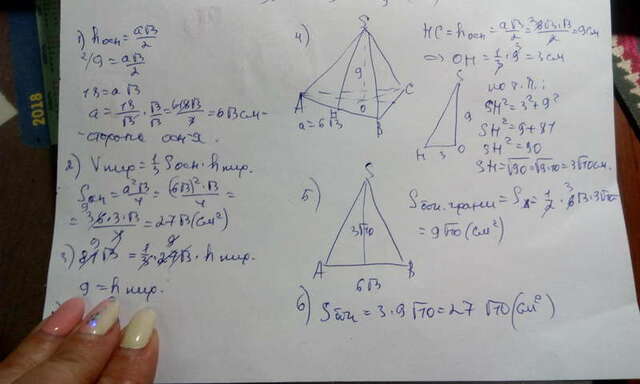 1) hосн = a√3/2
2/9 = a√3/2
18 = a√3
a = 18/√3 · √3/√3 = 618√3/3 = 6√3 см -
- сторона осн-я.
2) Vпир = 1/3 Sосн · hпир.
Sосн = a²√3/4 = (6√3)²·√3/4 =
= 36·3·√3/4 = 27√3 (см²)
3) 81√3 = 1/3 · 27√3 · hпир.
9 = hпир.
4)
S
9
A
H
O
C
B
a = 6√3
HC = hосн = a√3/2 = 6√3·√3/2 = 9 см
=> OH = 1/3 · 9 = 3 см
S
9
H 3 O
по т. П.:
SH² = 3² + 9²
SH² = 9 + 81
SH² = 90
SH = √90 = √9·10 = 3√10 см.
5)
S
3√10
A B
6√3
Sбок. грани = SΔ = 1/2 · 6√3 · 3√10
= 9√10 (см²)
6) Sбок = 3·9√10 = 27 √10 (см²)
2018